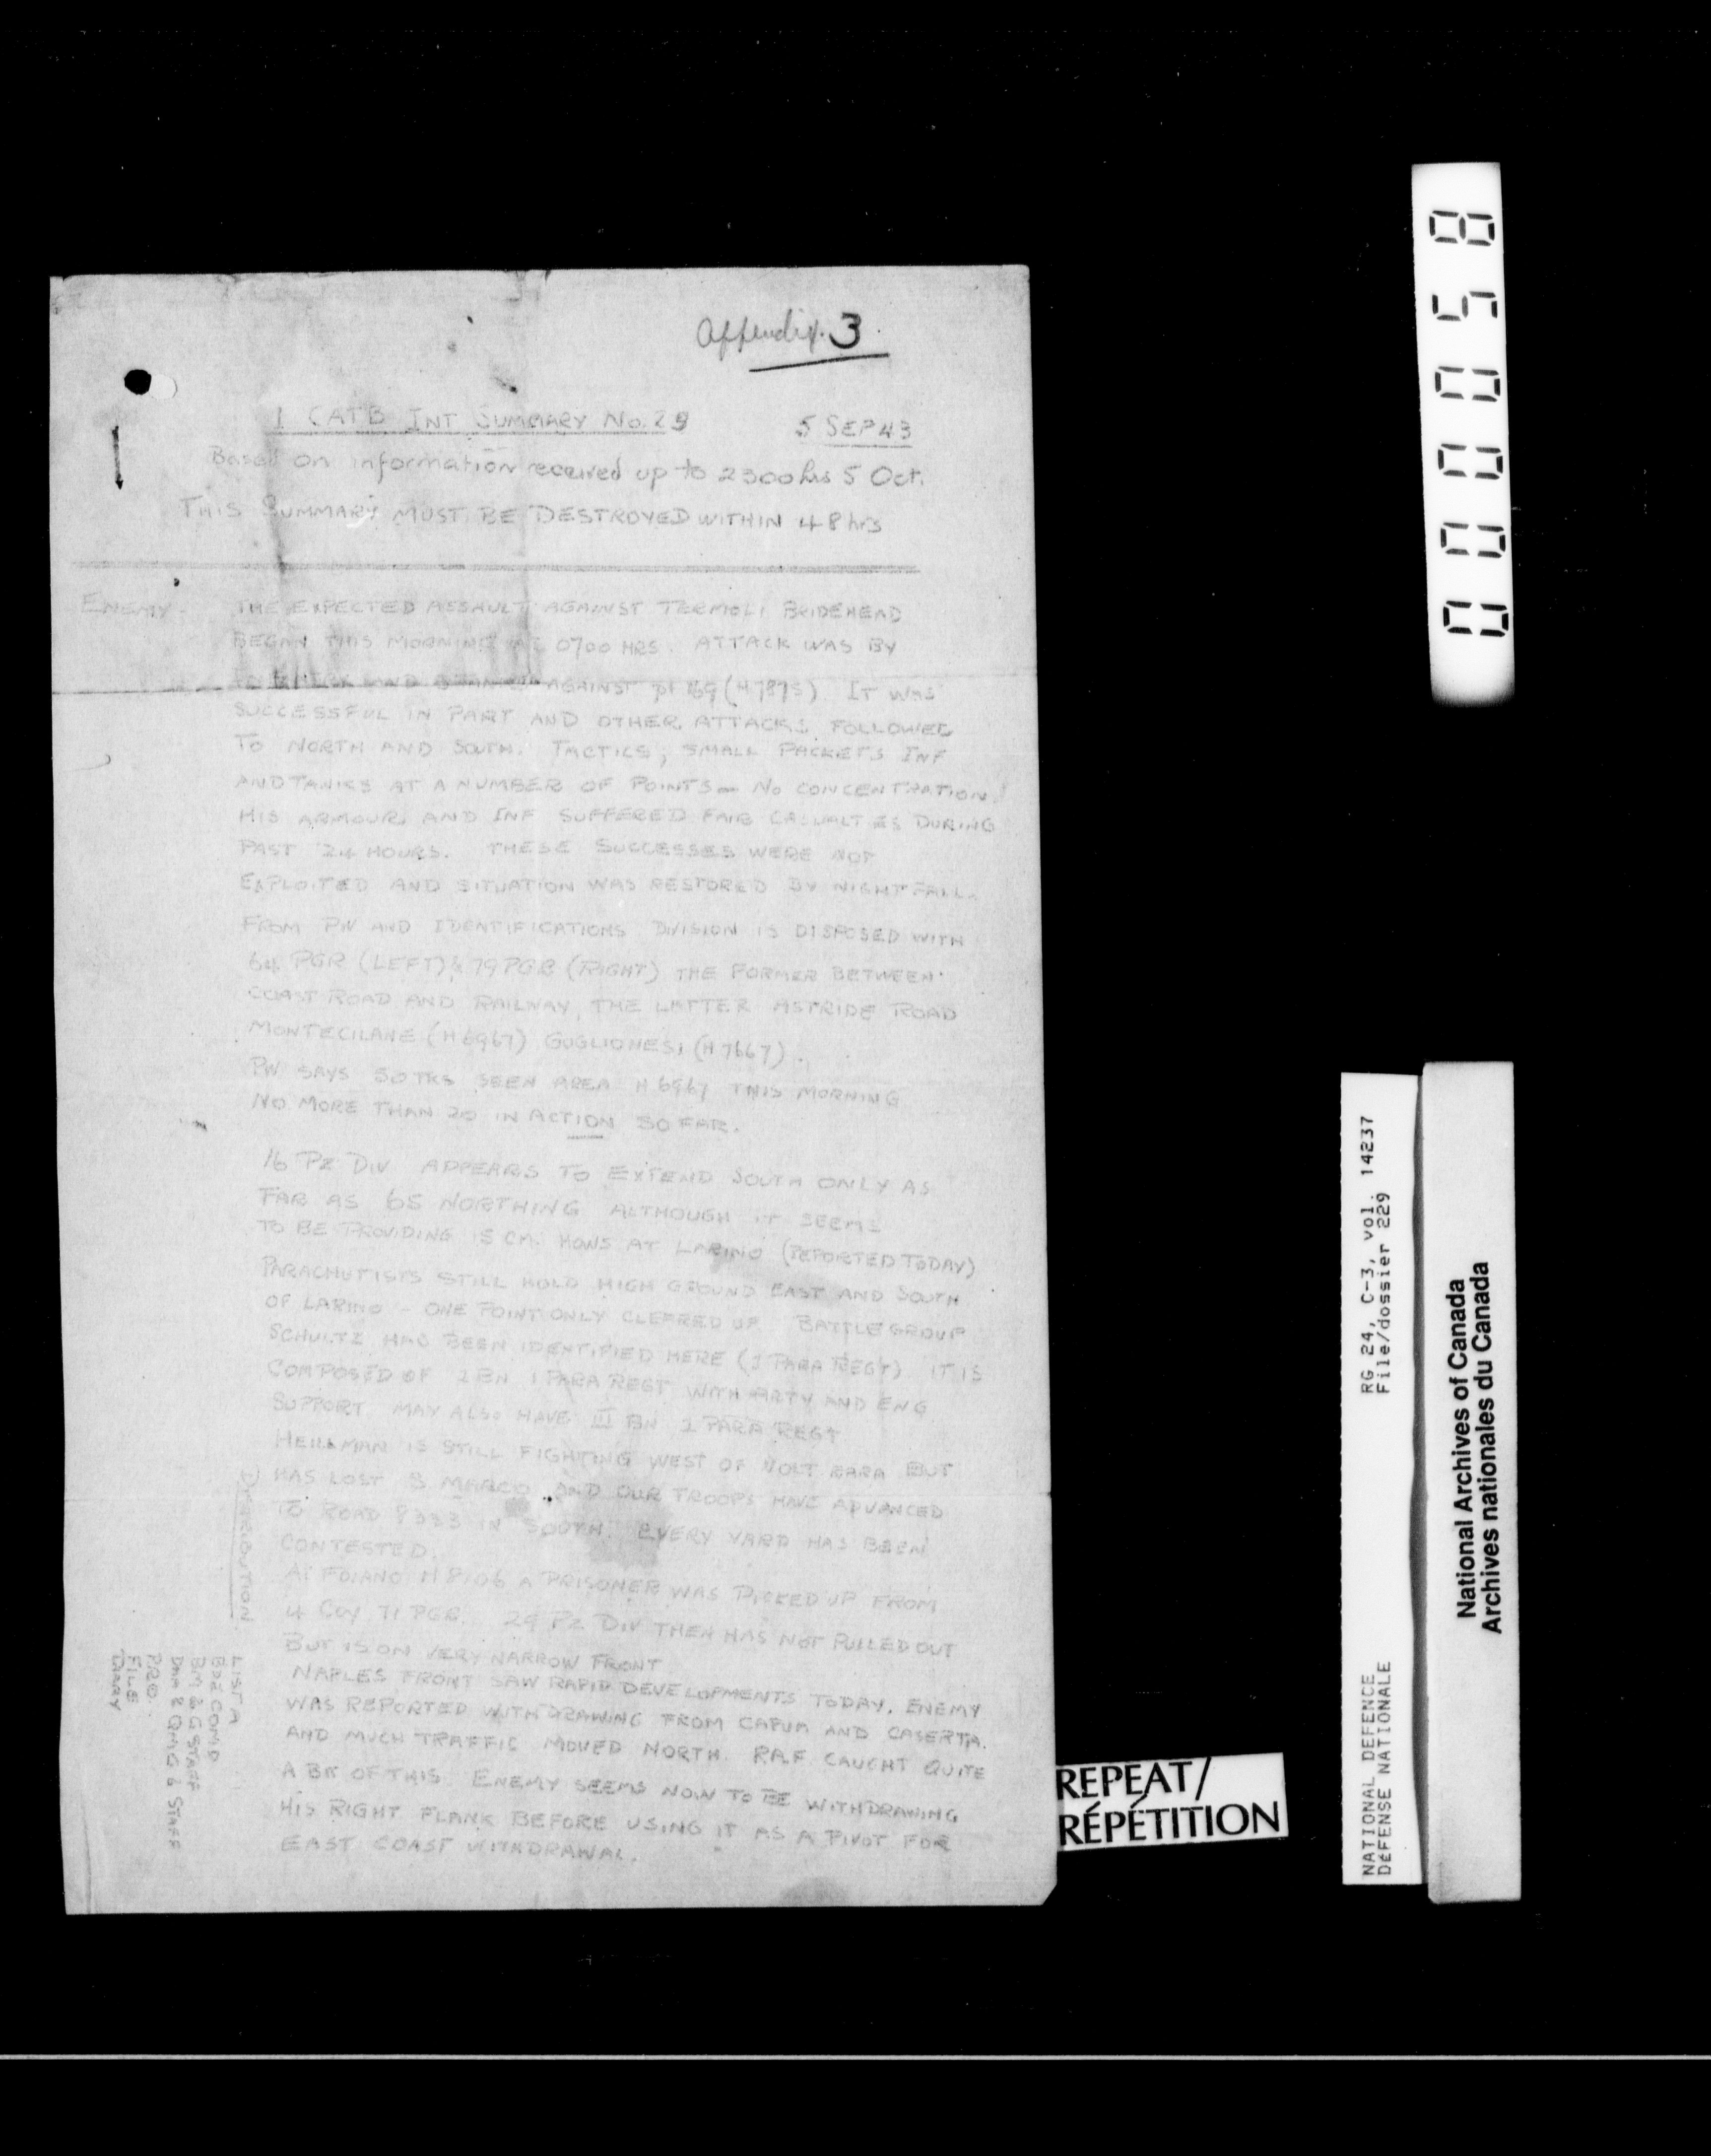 Appendix 3
1 CATB INT SUMMARY No. 29 5 SEP 43
Based on information received up to 2300 hrs 5 Oct.
THIS SUMMARY MUST BE DESTROYED WITHIN 48 hrs
ENEMY. THE EXPECTED ASSAULT AGAINST TERMOLI BRIDEHEAD
BEGAN THIS MORNING AT 0700 HRS. ATTACK WAS BY
AGAINST pt 169 (H7875). IT WAS
SUCCESSFUL IN PART AND OTHER ATTACKS FOLLOWED
TO NORTH AND SOUTH. TACTICS, SMALL PACKETS INF
AND TANKS AT A NUMBER OF POINTS — NO CONCENTRATION.
HIS ARMOUR AND INF SUFFERED FAIR CASUALTIES DURING
PAST 24 HOURS. THESE SUCCESSES WERE NOT
EXPLOITED AND SITUATION WAS RESTORED BY NIGHTFALL.
FROM PW AND IDENTIFICATIONS DIVISION IS DISPOSED WITH
64 PGR (LEFT) & 79 PGR (RIGHT) THE FORMER BETWEEN
COAST ROAD AND RAILWAY, THE LATTER ASTRIDE ROAD
MONTECILANE (H6967) GUGLIONESI (H7667).
PW SAYS 50 TKS SEEN AREA H6967 THIS MORNING
NO MORE THAN 20 IN ACTION SO FAR.
16 PZ DIV APPEARS TO EXTEND SOUTH ONLY AS
FAR AS 65 NORTHING ALTHOUGH IT SEEMS
TO BE PROVIDING 15 CM. HOWS AT LARINO (REPORTED TODAY)
PARACHUTISTS STILL HOLD HIGH GROUND EAST AND SOUTH
OF LARINO - ONE POINT ONLY CLEARED UP. BATTLEGROUP
SCHULTZ HAS BEEN IDENTIFIED HERE (1 PARA REGT) IT IS
COMPOSED OF 1 BN 1 PARA REGT WITH ARTY AND ENG
SUPPORT MAY ALSO HAVE III BN 1 PARA REGT
HEILMAN IS STILL FIGHTING WEST OF VOLTEARA BUT
HAS LOST S MARCO AND OUR TROOPS HAVE ADVANCED
TO ROAD 8333 IN SOUTH. EVERY YARD HAS BEEN
CONTESTED.
AT FOIANO H8106 A PRISONER WAS PICKED UP FROM
4 COY 71 PGR. 29 PZ DIV THEN HAS NOT PULLED OUT
BUT IS ON VERY NARROW FRONT
NAPLES FRONT SAW RAPID DEVELOPMENTS TODAY. ENEMY
WAS REPORTED WITHDRAWING FROM CAPUA AND CASERTA.
AND MUCH TRAFFIC MOVED NORTH. RAF CAUGHT QUITE
A BIT OF THIS. ENEMY SEEMS NOW TO BE WITHDRAWING
HIS RIGHT FLANK BEFORE USING IT AS A PIVOT FOR
EAST COAST WITHDRAWAL.
DISTRIBUTION
LIST A
BDE COMD
BM & G STAFF
DAA & QMG & STAFF
P.R.O.
FILE
DIARY
REPEAT/
RÉPÉTITION
NATIONAL DEFENCE RG 24, C-3, vol. 14237
DÉFENSE NATIONALE File/dossier 229
National Archives of Canada
Archives nationales du Canada
000058